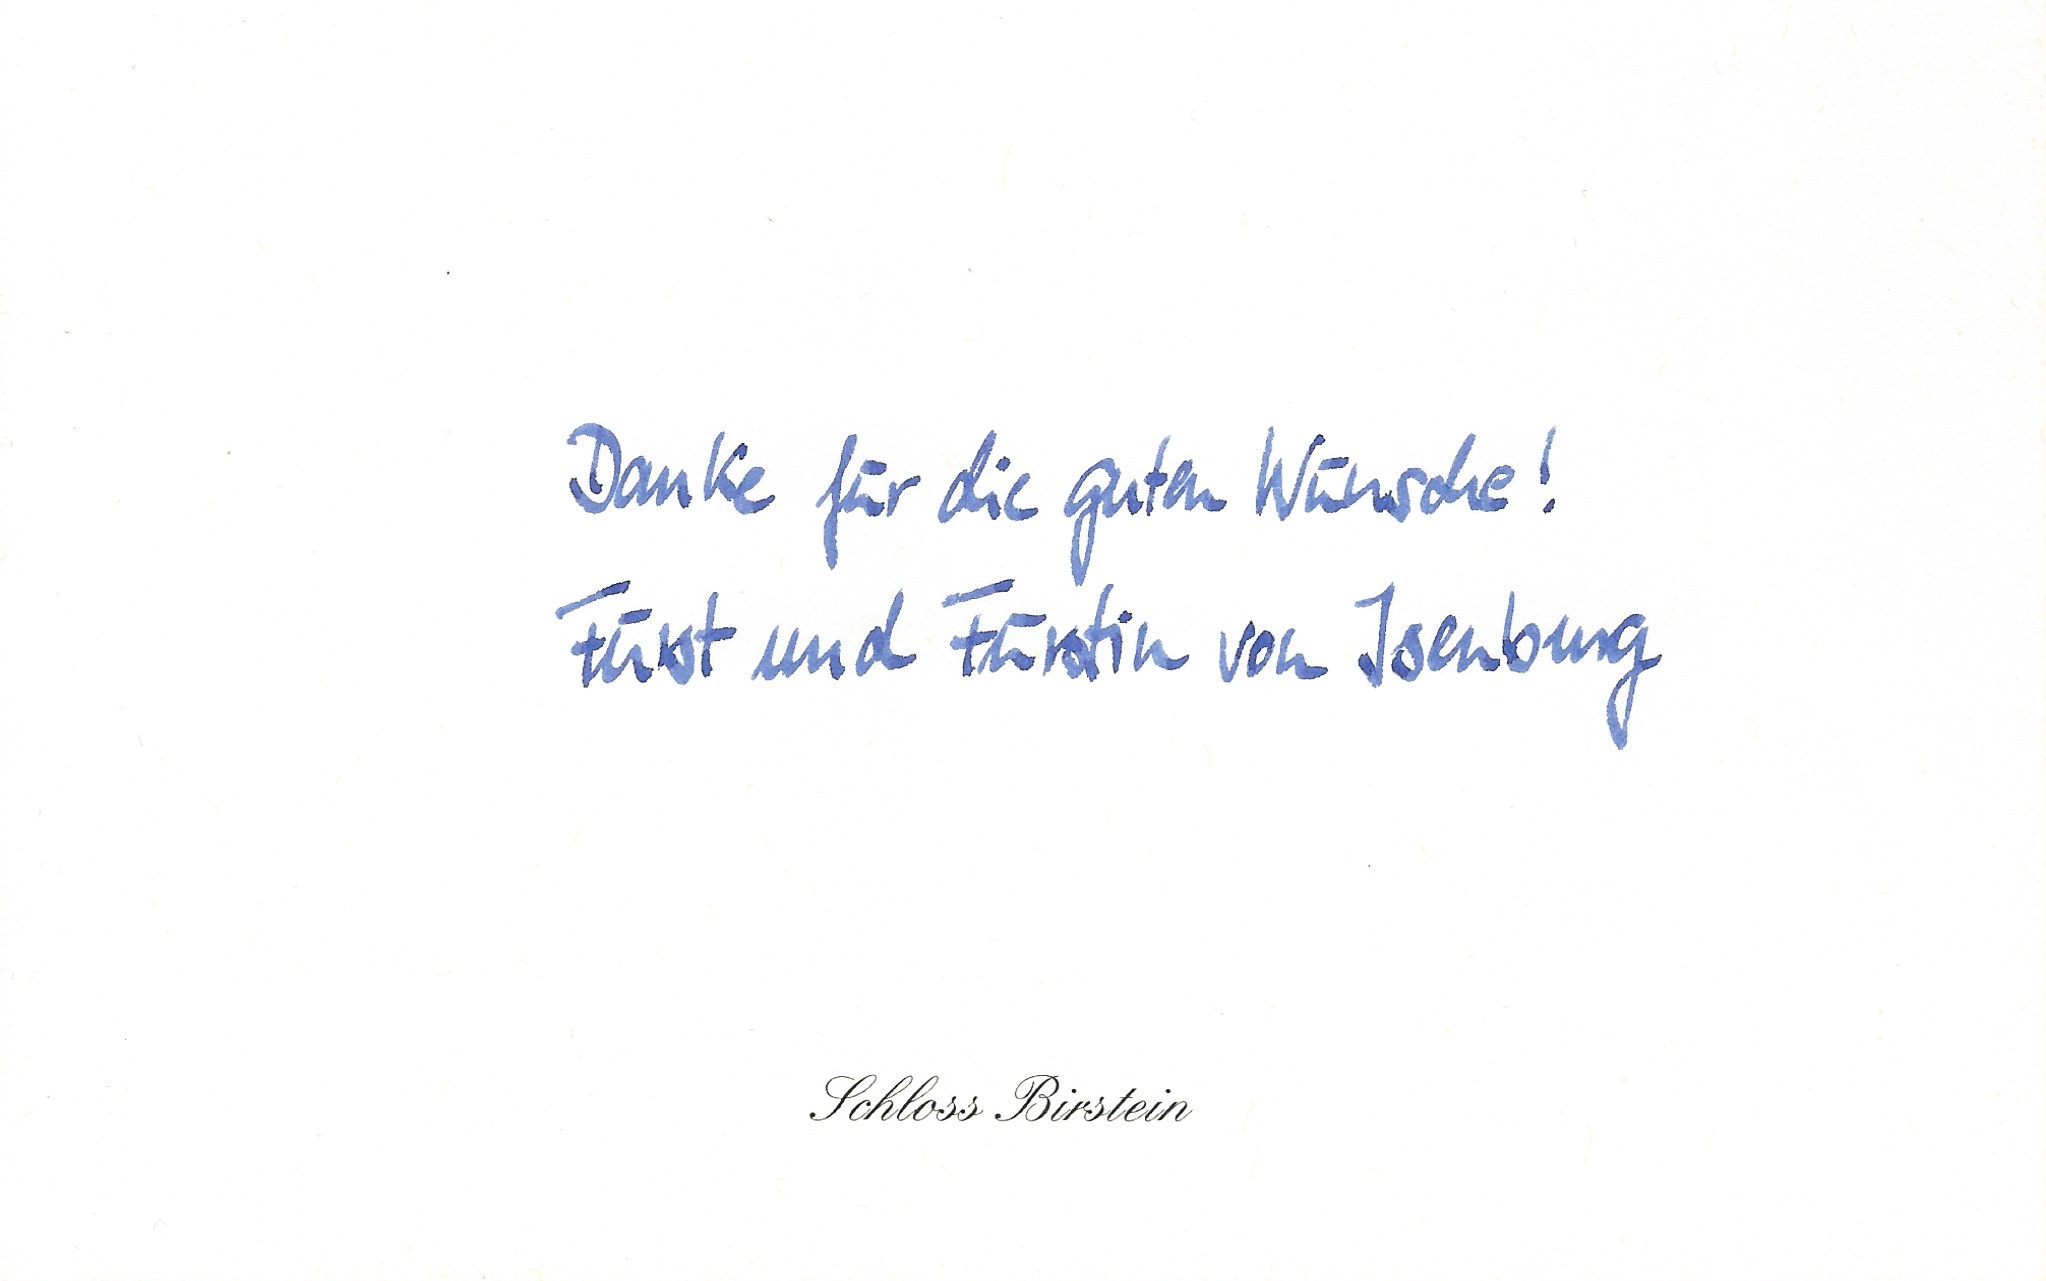 Danke für die guten Wünsche!
Fürst und Fürstin von Isenburg
Schloss Birstein